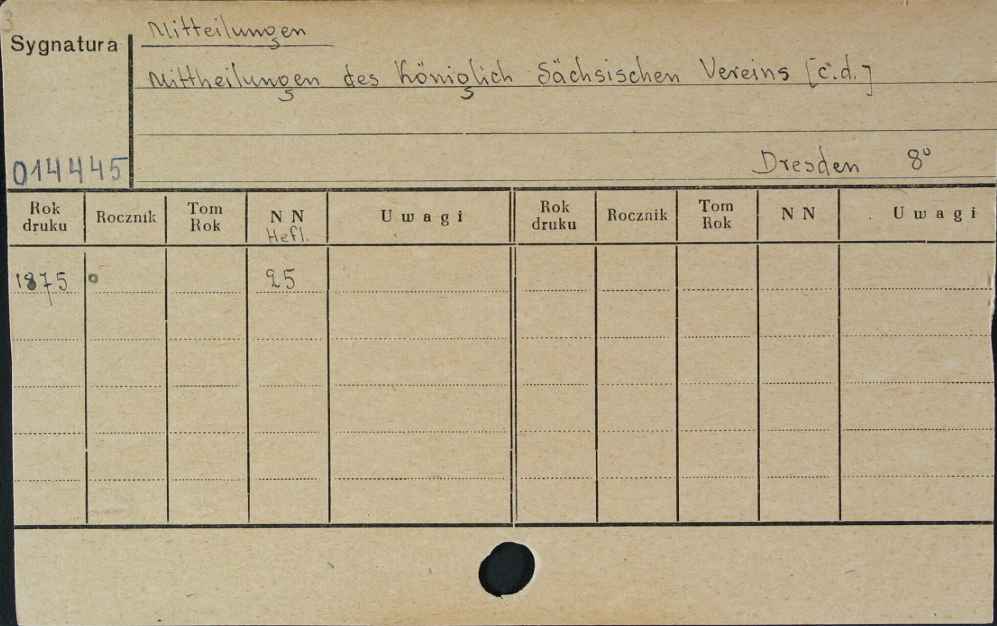 3
Mitteilungen
Sygnatura
Mittheilungen des Königlich Sächsischen Vereins [c.d.]
014445
Dresden 8°
Rok druku Rocznik Tom Rok N N Hefl. Uwagi Rok druku Rocznik Tom Rok N N Uwagi
1875 25